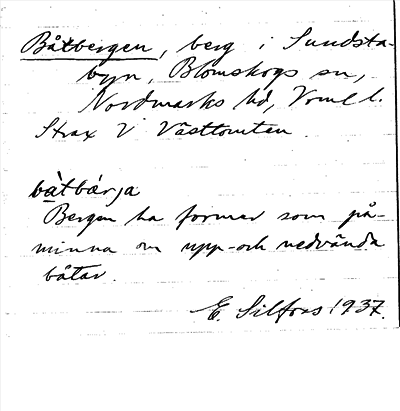 Båtbergen, berg i Sundsta-
byn, Blomskogs sn,
Nordmarks hd, Vrml l.
Strax V Västtomten.
bàtbárja
Bergen ha former som på-
minna om upp- och nedvända
båtar.
E. Silfors 1937.